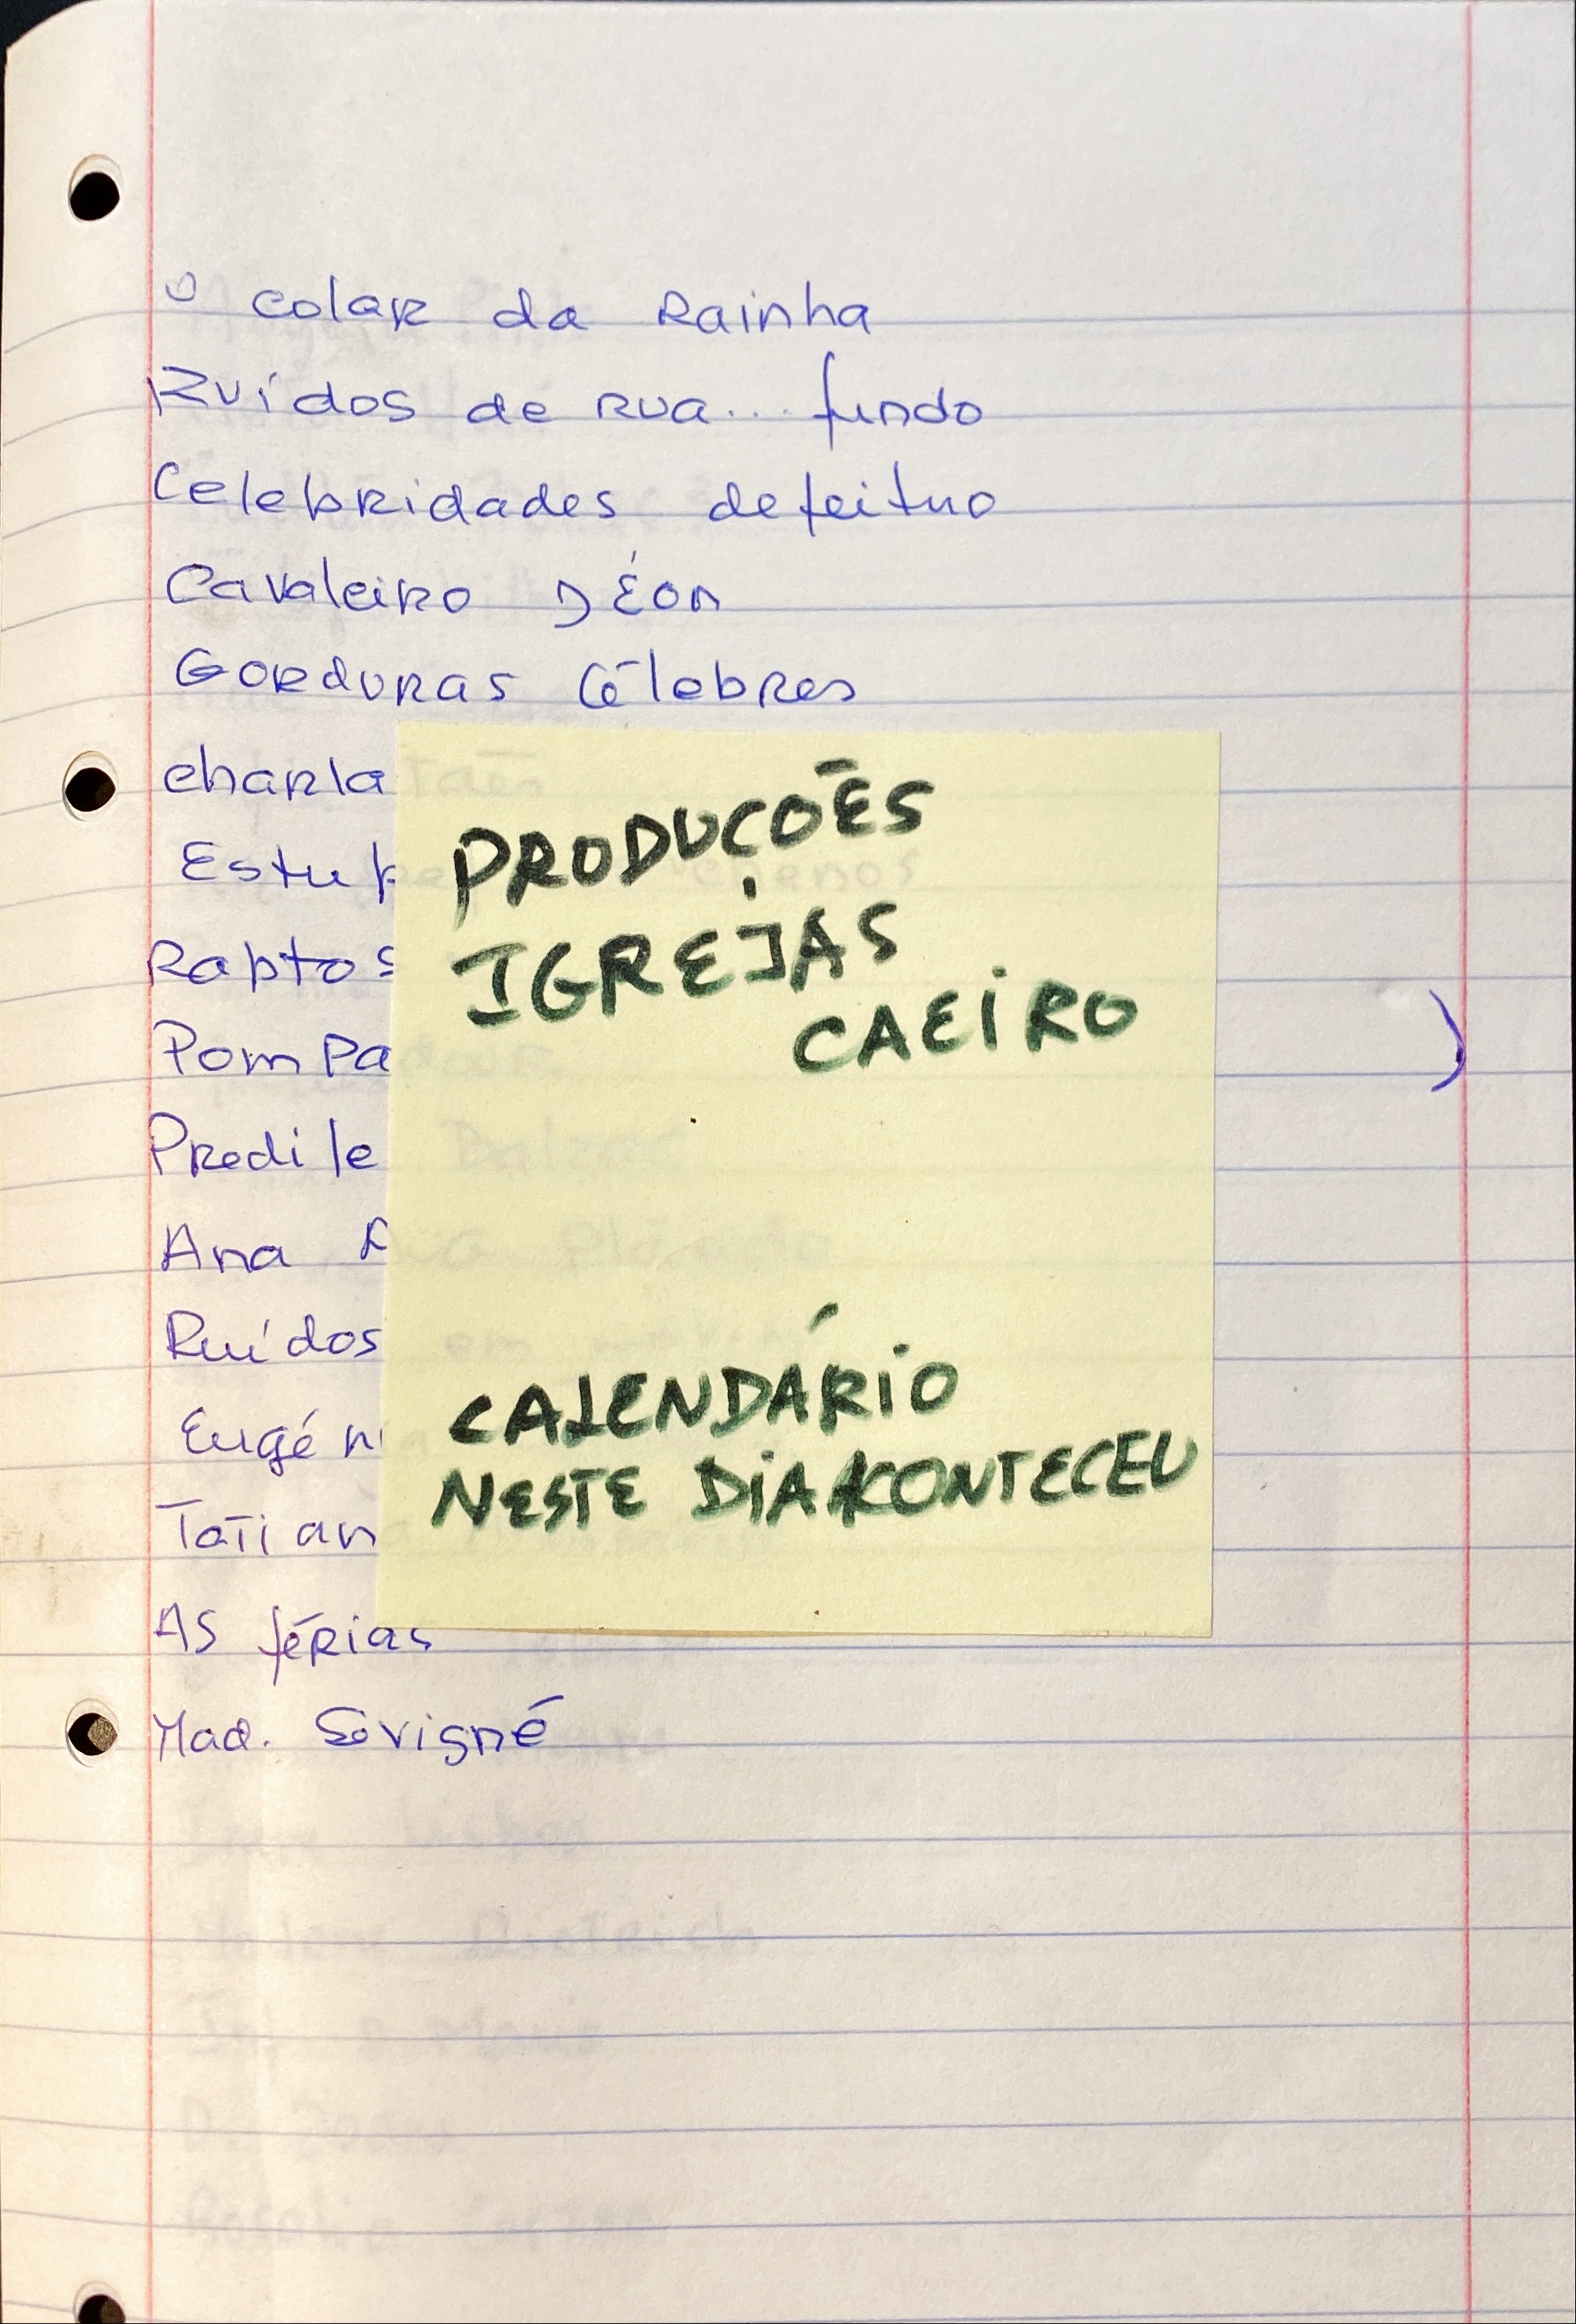 O colar da Rainha
Ruídos de rua... fundo
Celebridades defeituo
Cavaleiro D Éon
Gorduras Célebres
charla
Estup
Raptos
Pompa
Predile
Ana
Ruídos
Eugéni
Tatian
As férias
Mad. Sévigné
PRODUÇÕES
IGREJAS
CAEIRO
CALENDÁRIO
NESTE DIA ACONTECEU